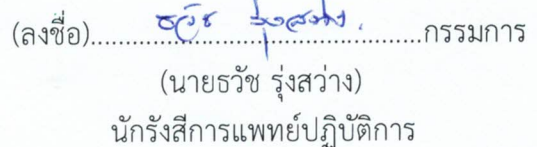 (ลงชื่อ)......ธวัช รุ่งสว่าง......กรรมการ
(นายธวัช รุ่งสว่าง)
นักรังสีการแพทย์ปฏิบัติการ